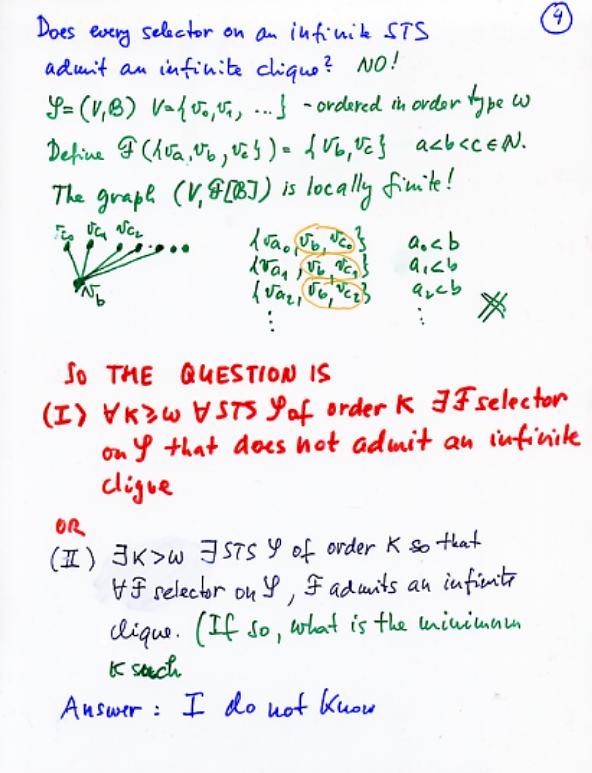 4
Does every selector on an infinite STS
admit an infinite clique? NO!
𝒮=(V,B) V={v₀,v₁, ...} - ordered in order type ω
Define ℱ({va,vb,vc}) = {vb,vc} a<b<c∈N.
The graph (V,ℱ[B]) is locally finite!
vc₀ vc₁ vc₂
vb
{va₀,vb,vc₀} a₀<b
{va₁,vb,vc₁} a₁<b
{va₂,vb,vc₂} a₂<b
⋮ ⋮
SO THE QUESTION IS
(I) ∀K≥ω ∀STS 𝒮 of order K ∃ℱ selector
on 𝒮 that does not admit an infinite
clique
OR
(II) ∃K>ω ∃STS 𝒮 of order K so that
∀ℱ selector on 𝒮, ℱ admits an infinite
clique. (If so, what is the minimum
K such
Answer: I do not know